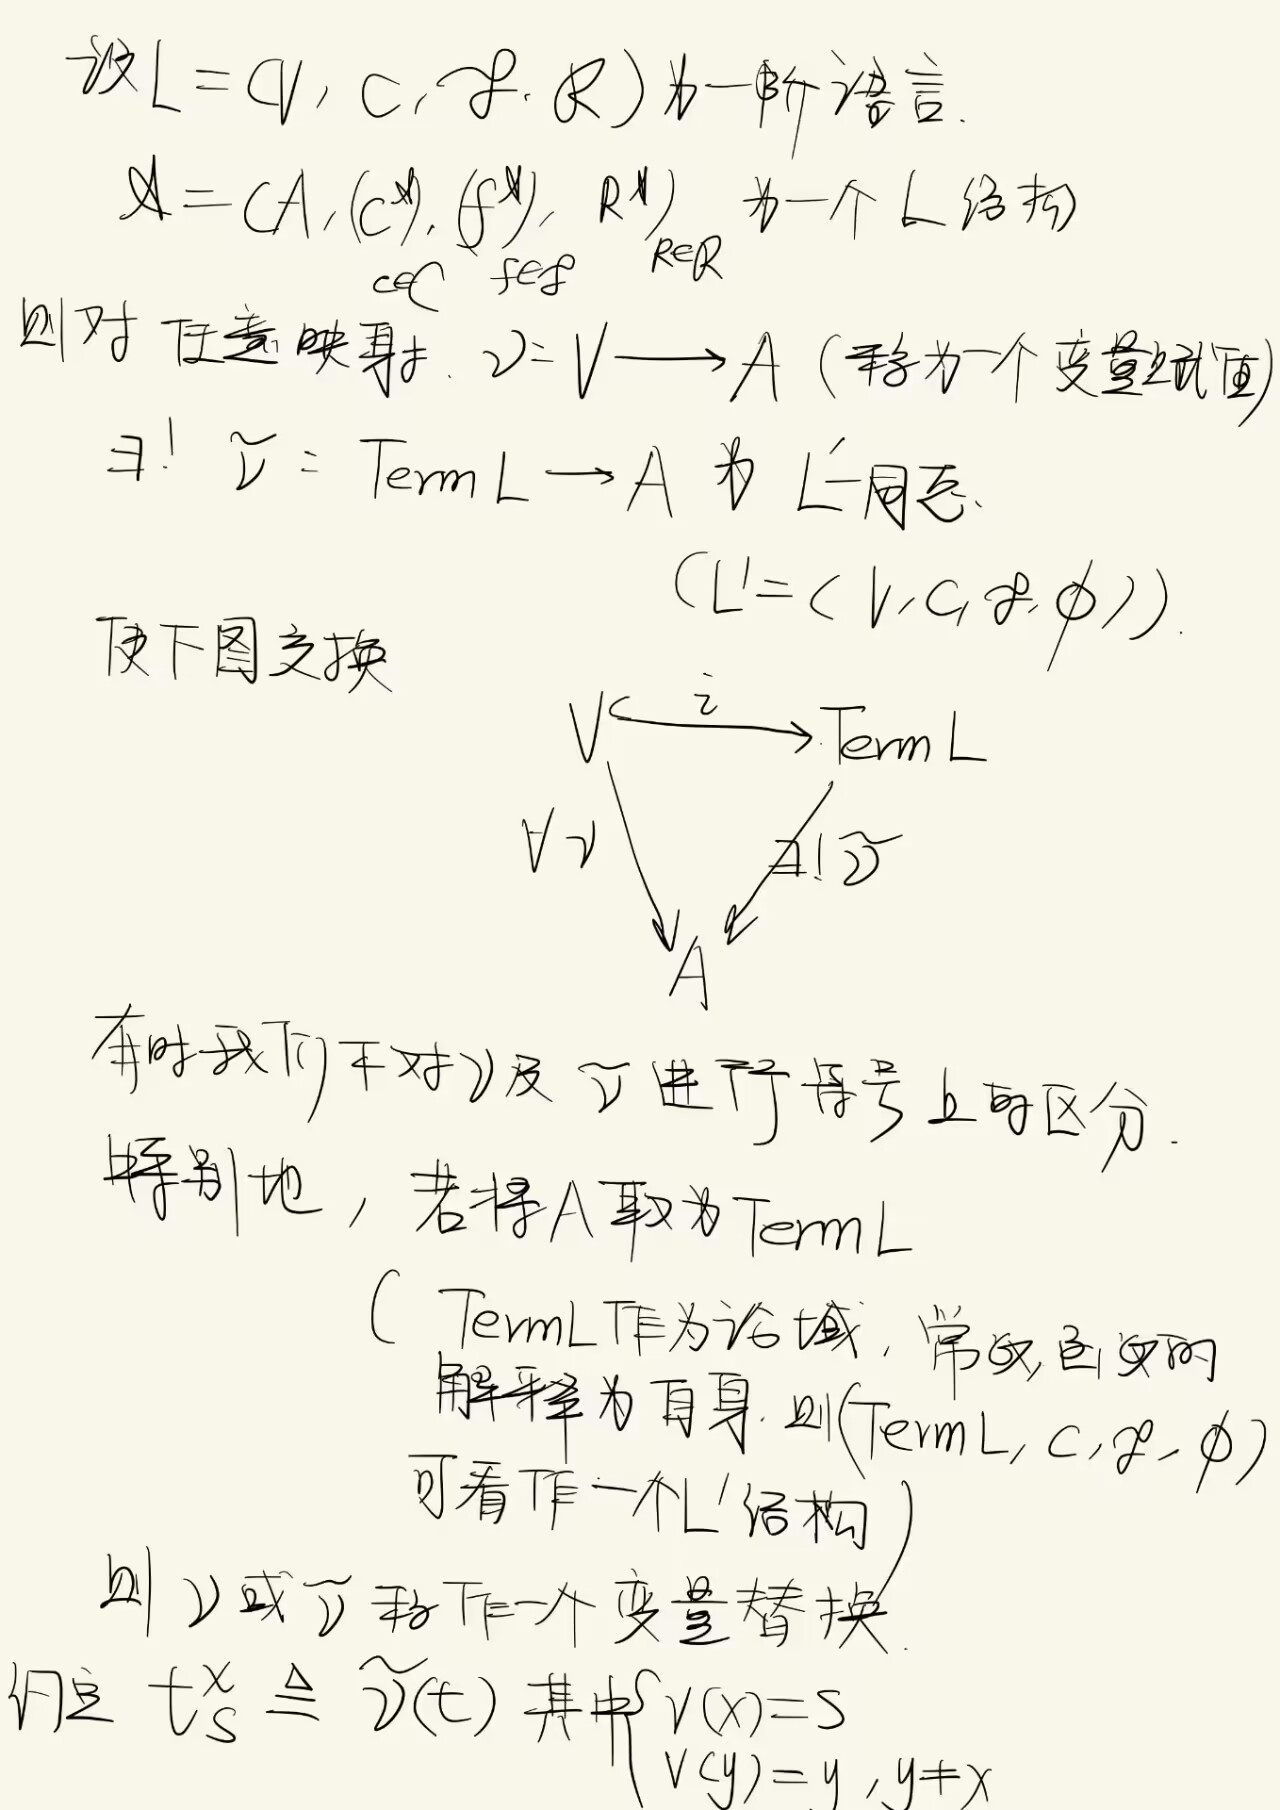 设L=(V, C, ℱ, ℛ)为一阶语言.
𝔄=(A, (c^𝔄), (f^𝔄), R^𝔄) 为一个L结构
c∈C f∈ℱ R∈ℛ
则对任意映射. ν: V → A (称为一个变量赋值)
∃! ν̃: Term L → A 为 L'-同态.
(L'=(V, C, ℱ, ∅)).
使下图交换
V i Term L
∀ν ∃! ν̃
A
有时我们不对ν及 ν̃ 进行符号上的区分.
特别地, 若将A取为Term L
(Term L作为论域, 常数,函数的
解释为自身. 则(Term L, C, ℱ, ∅)
可看作一个L'结构)
则 ν或ν̃称作一个变量替换.
t^x_s ≜ ν̃(t) 其中{ν(x)=s
ν(y)=y, y≠x